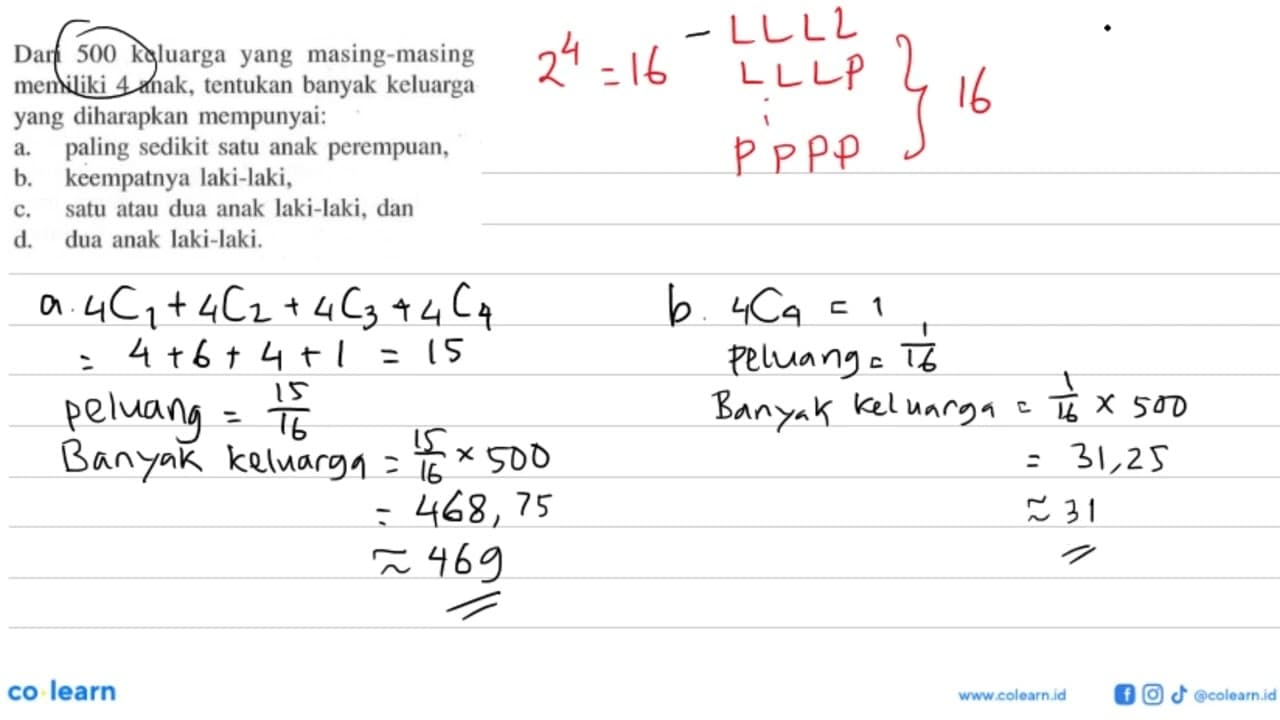 Dari 500 keluarga yang masing-masing
memiliki 4 anak, tentukan banyak keluarga
yang diharapkan mempunyai:
a. paling sedikit satu anak perempuan,
b. keempatnya laki-laki,
c. satu atau dua anak laki-laki, dan
d. dua anak laki-laki.
2⁴ = 16
- LLLL
LLLP
⋮
PPPP
} 16
a. 4C₁ + 4C₂ + 4C₃ + 4C₄
= 4 + 6 + 4 + 1 = 15
peluang = 15/16
Banyak keluarga = 15/16 × 500
= 468,75
≈ 469
b. 4C₄ = 1
peluang = 1/16
Banyak keluarga = 1/16 × 500
= 31,25
≈ 31
co learn
www.colearn.id
@colearn.id